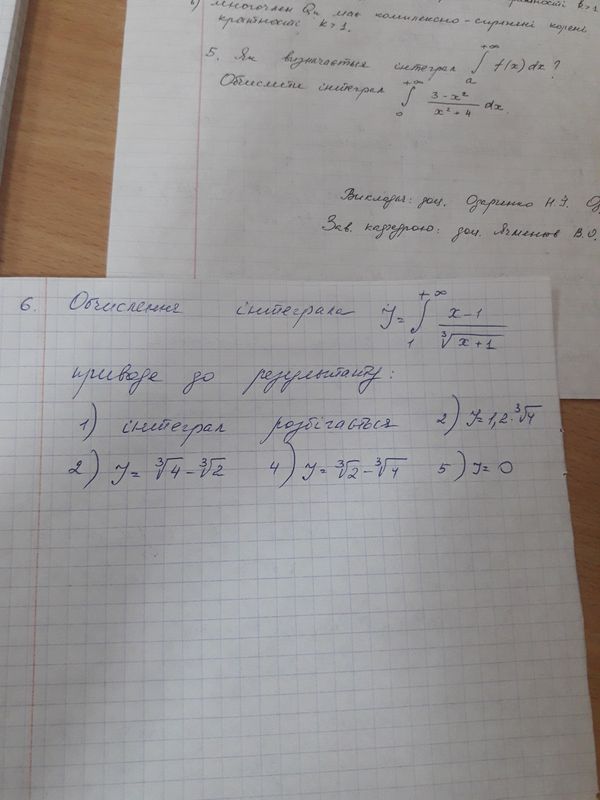 многочлен Qₙ має комплексно-спряжені корені
кратності k>1.
5. Як визначається інтеграл ∫ₐ^{+∞} f(x)dx?
Обчислити інтеграл ∫₀^{+∞} (3-x²)/(x²+4) dx
Викладач: доц. Одаринко Н.І.
Зав. кафедрою: доц. В.О.
6. Обчислення інтеграла J=∫₁^{+∞} (x-1)/∛(x+1)
приводе до результату:
1) інтеграл розбігається 2) J=1,2·∛4
2) J=∛4-∛2 4) J=∛2-∛4 5) J=0